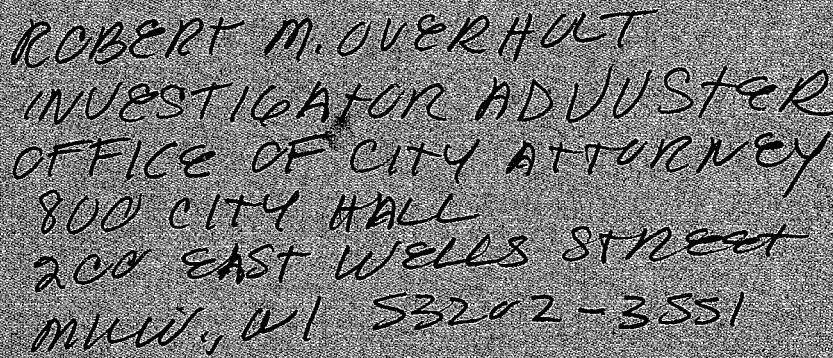 ROBERT M. OVERHOLT
INVESTIGATOR ADJUSTER
OFFICE OF CITY ATTORNEY
800 CITY HALL
200 EAST WELLS STREET
MILW., WI 53202-3551